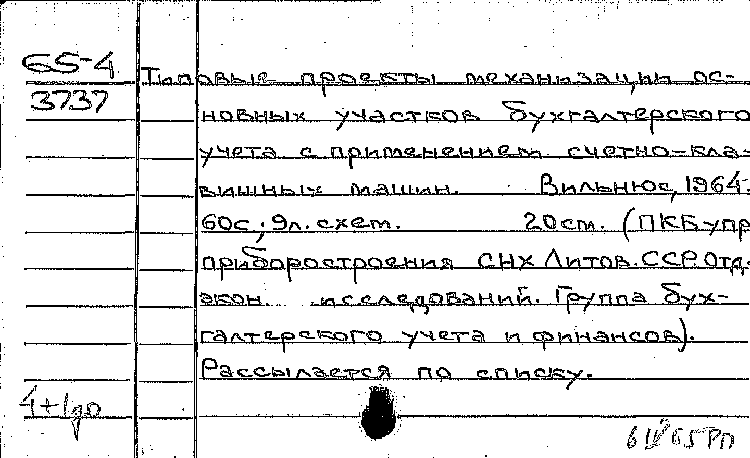 65-4
3737
Типовые проекты механизации ос-
новных участков бухгалтерского
учета с применением счетно-кла-
вишных машин. Вильнюс, 1964.
60с.; 9л. схем. 20см. (ПКБ упр
приборостроения СНХ Литов. ССР. Отд.
экон. исследований. Группа бух-
галтерского учета и финансов).
Рассылается по списку.
4+1до
6 IV 65 РП